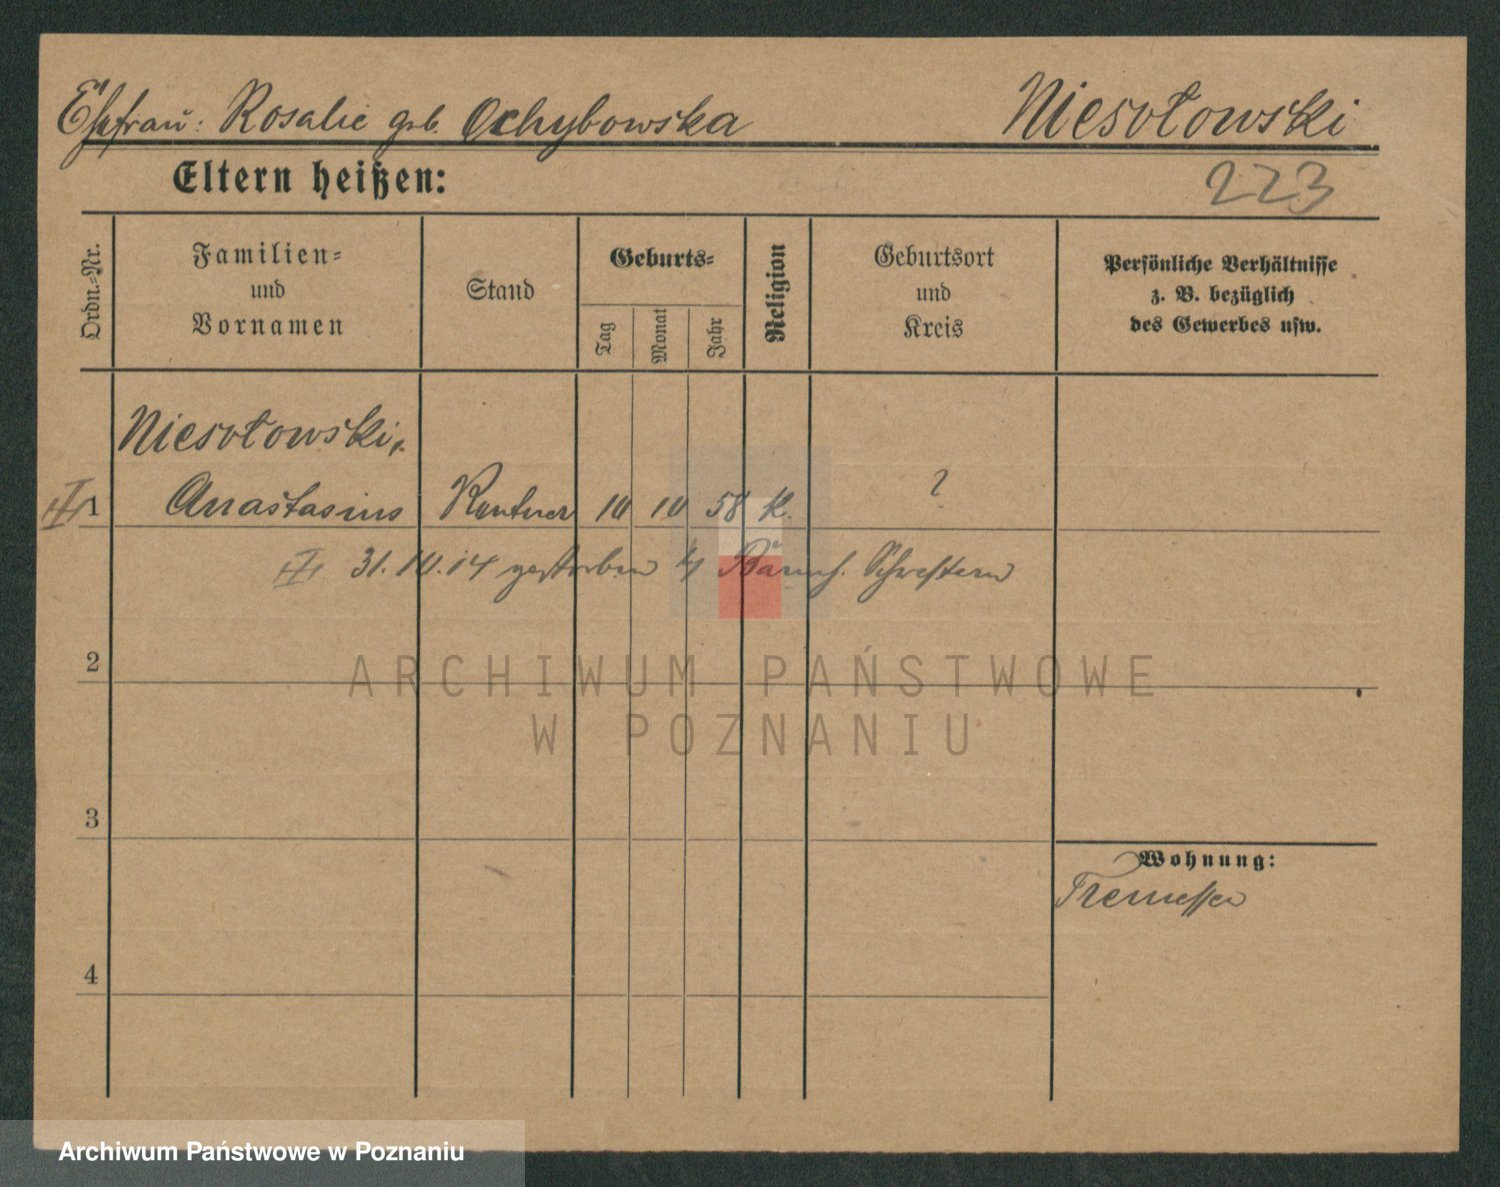 Ehefrau: Rosalie geb. Ochybowska
Niesołowski
Eltern heißen:
223
Ordn.=Nr.
Familien=
und
Vornamen
Stand
Geburts=
Tag
Monat
Jahr
Religion
Geburtsort
und
Kreis
Persönliche Verhältnisse
z. B. bezüglich
des Gewerbes usw.
Niesołowski,
1
Anastasius
Rentner
10
10
58
K.
?
31.10.14 gestorben Barmh. Schwestern
2
ARCHIWUM PAŃSTWOWE
W POZNANIU
3
Wohnung:
Tremessen
4
Archiwum Państwowe w Poznaniu